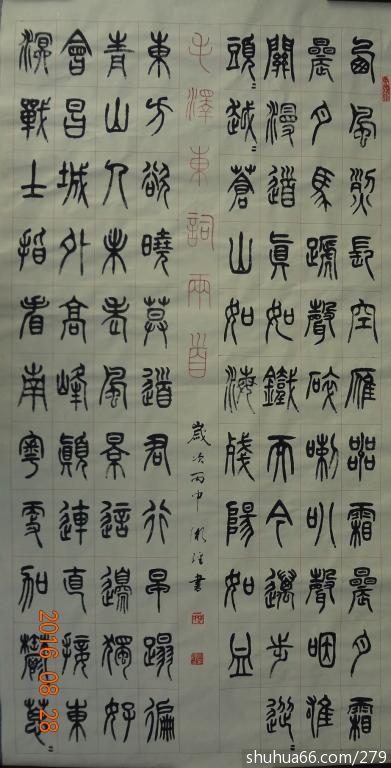 西風烈長空雁叫霜晨月霜
晨月馬蹄聲碎喇叭聲咽雄
關漫道真如鐵而今邁步從〻
頭〻越〻蒼山如海殘陽如血
毛澤東詞兩首
歲次丙申
東方欲曉莫道君行早踏遍
青山人未老風景這邊獨好
會昌城外高峰顛連直接東
溟戰士指看南粵更加鬱〻蔥〻
2016-08-28
shuhua66.com/279